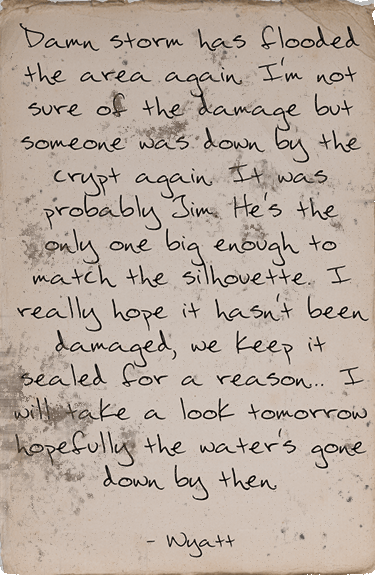 Damn storm has flooded
the area again. I'm not
sure of the damage but
someone was down by the
crypt again. It was
probably Jim. He's the
only one big enough to
match the silhouette. I
really hope it hasn't been
damaged, we keep it
sealed for a reason.. I
will take a look tomorrow
hopefully the water's gone
down by then.
- Wyatt